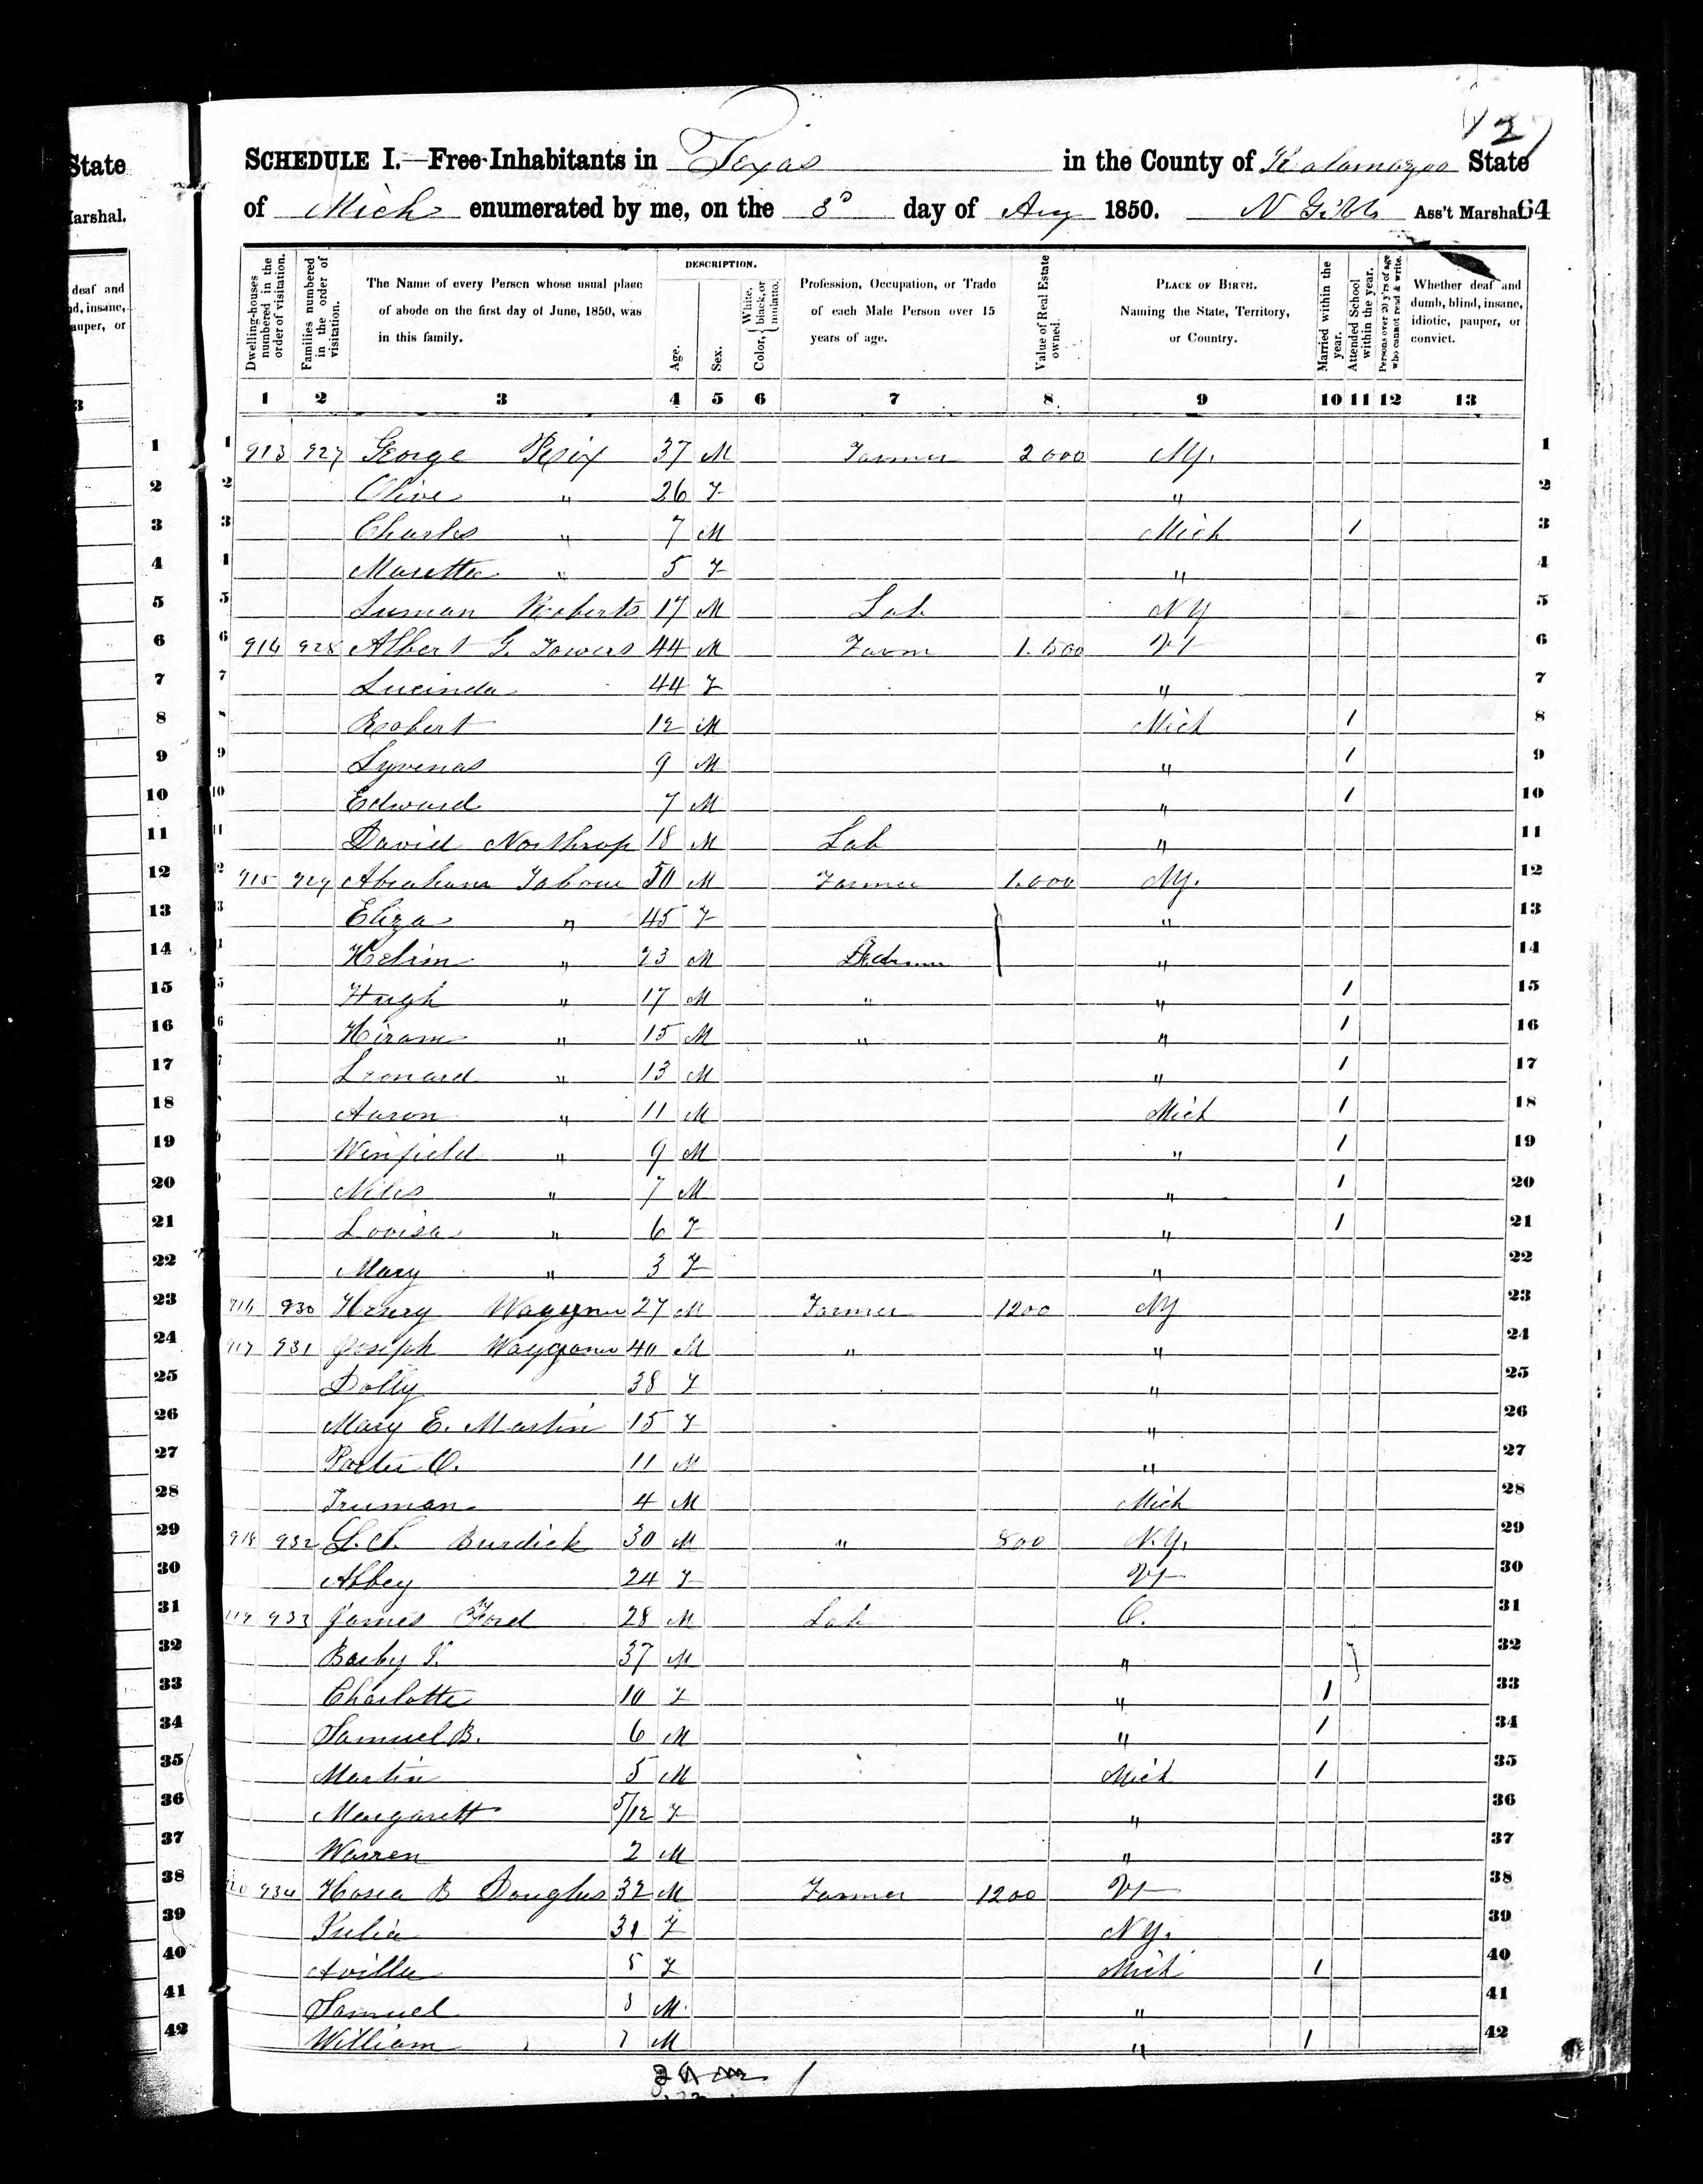 State
Marshal.
deaf and
nd, insane,
auper, or
SCHEDULE I.—Free Inhabitants in Texas in the County of Kalamazoo State
of Mich enumerated by me, on the 3d day of Aug 1850. N Gibbs Ass't Marshal. 64
Dwelling-houses numbered in the order of visitation.
Families numbered in the order of visitation.
The Name of every Person whose usual place of abode on the first day of June, 1850, was in this family.
DESCRIPTION.
Age.
Sex.
Color, { White, black, or mulatto.
Profession, Occupation, or Trade of each Male Person over 15 years of age.
Value of Real Estate owned.
PLACE OF BIRTH. Naming the State, Territory, or Country.
Married within the year.
Attended School within the year.
Persons over 20 y'rs of age who cannot read & write.
Whether deaf and dumb, blind, insane, idiotic, pauper, or convict.
1 2 3 4 5 6 7 8 9 10 11 12 13
1 913 927 George Rix 37 M Farmer 2000 NY. 1
2 Olive " 26 F " 2
3 Charles " 7 M Mich 1 3
4 Maretta " 5 F " 4
5 Luman Roberts 17 M Lab NY 5
6 914 928 Albert G. Towers 44 M Farm 1.500 Vt 6
7 Lucinda 44 F " 7
8 Robert 12 M Mich 1 8
9 Lyvenas 9 M " 1 9
10 Edward 7 M " 1 10
11 David Northrop 18 M Lab " 11
12 915 929 Abraham Tabour 50 M Farmer 1.000 NY. 12
13 Eliza " 45 F " 13
14 " 23 M " 14
15 Hugh " 17 M " " 1 15
16 Hiram " 15 M " " 1 16
17 Leonard " 13 M " 1 17
18 Aaron " 11 M Mich 1 18
19 Winfield " 9 M " 1 19
20 Niles " 7 M " 1 20
21 Lovisa " 6 F " 1 21
22 Mary " 3 F " 22
23 916 930 Henry Waggoner 27 M Farmer 1200 NY 23
24 917 931 Joseph Waggoner 40 M " " 24
25 Dolly 38 F " 25
26 Mary E. Martin 15 F " 26
27 Porter O. 11 M " 27
28 Truman 4 M Mich 28
29 918 932 Burdick 30 M " 800 N.Y. 29
30 Abbey 24 F Vt 30
31 919 933 James Ford 28 M Lab O. 31
32 37 M " 32
33 Charlotte 10 F " 1 33
34 Samuel B. 6 M " 1 34
35 Martin 5 M Mich 1 35
36 Margarett 5/12 F " 36
37 Warren 2 M " 37
38 920 934 Hosea B Douglas 32 M Farmer 1200 Vt 38
39 Julia 31 F N.Y. 39
40 Avilla 5 F Mich 1 40
41 Samuel 3 M " 41
42 William 1 M " 1 42